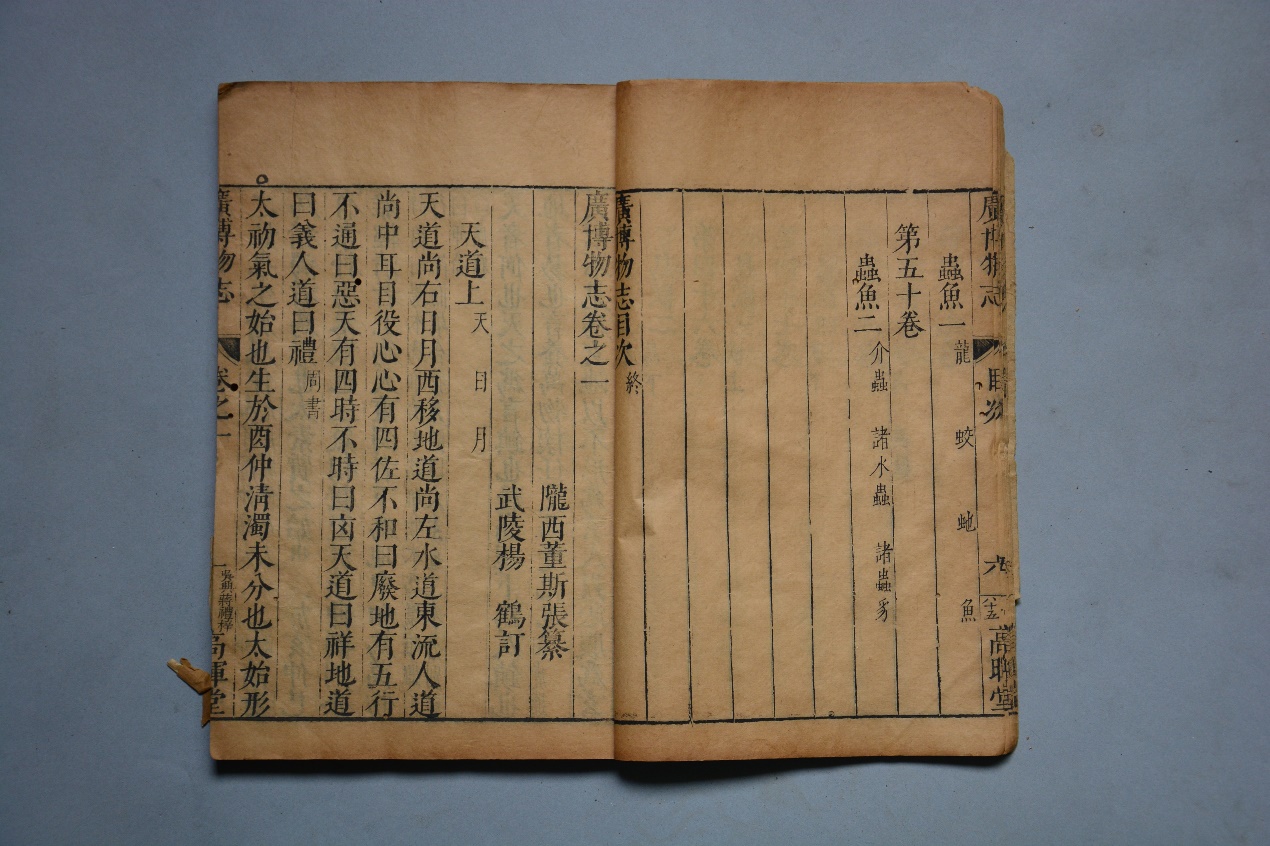 廣博物志 目次 九 高暉堂
蟲魚一 龍 蛟 虵 魚
第五十卷
蟲魚二 介蟲 諸水蟲 諸蟲豸
廣博物志目次 終
廣博物志卷之一
隴西董斯張纂
武陵楊 鶴訂
天道上 天 日 月
天道尚右日月西移地道尚左水道東流人道
尚中耳目役心心有四佐不和曰廢地有五行
不通曰惡天有四時不時曰㐫天道曰祥地道
曰義人道曰禮 周書
太初氣之始也生於酉仲淸濁未分也太始形
廣博物志 卷之一 一 高暉堂